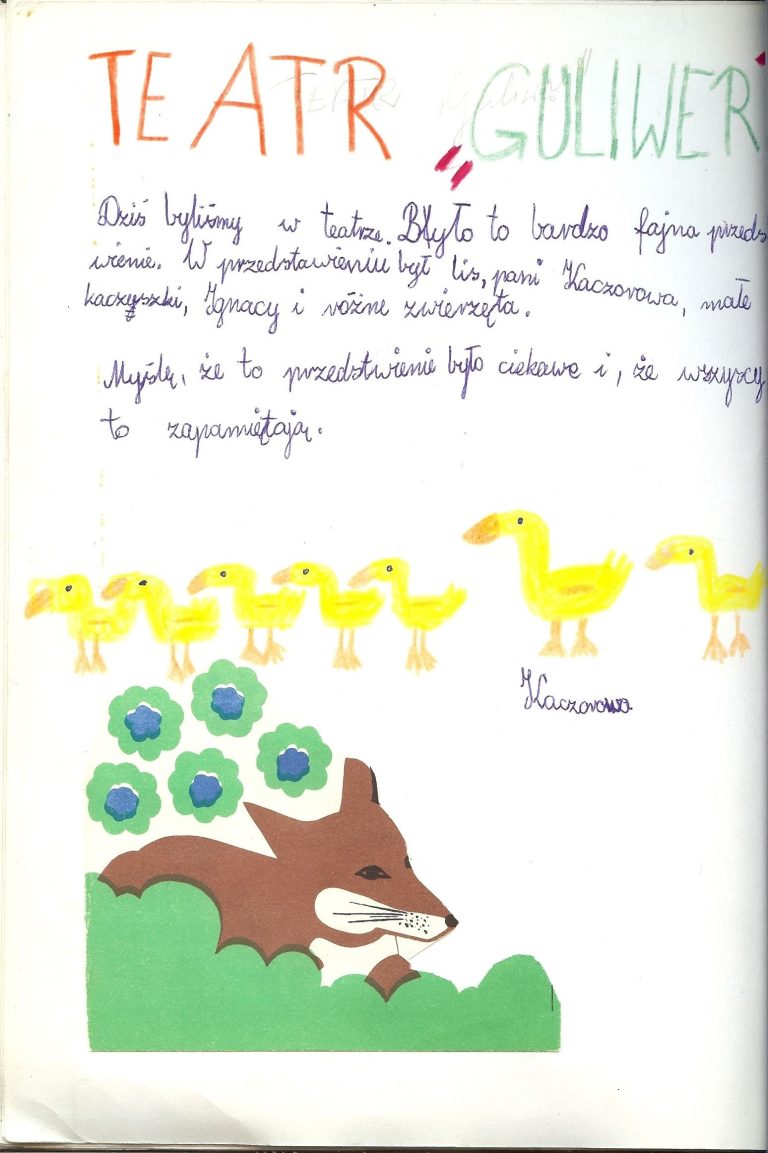 TEATR „GULIWER"
Dziś byliśmy w teatrze. Było to bardzo fajna przeds
wienie. W przedstawieniu był lis, pani Kaczorowa, małe
kaczyszki, Ignacy i różne zwierzęta.
Myślę, że to przedstwienie było ciekawe i, że wszyscy
to zapamiętają.
Kaczorowa